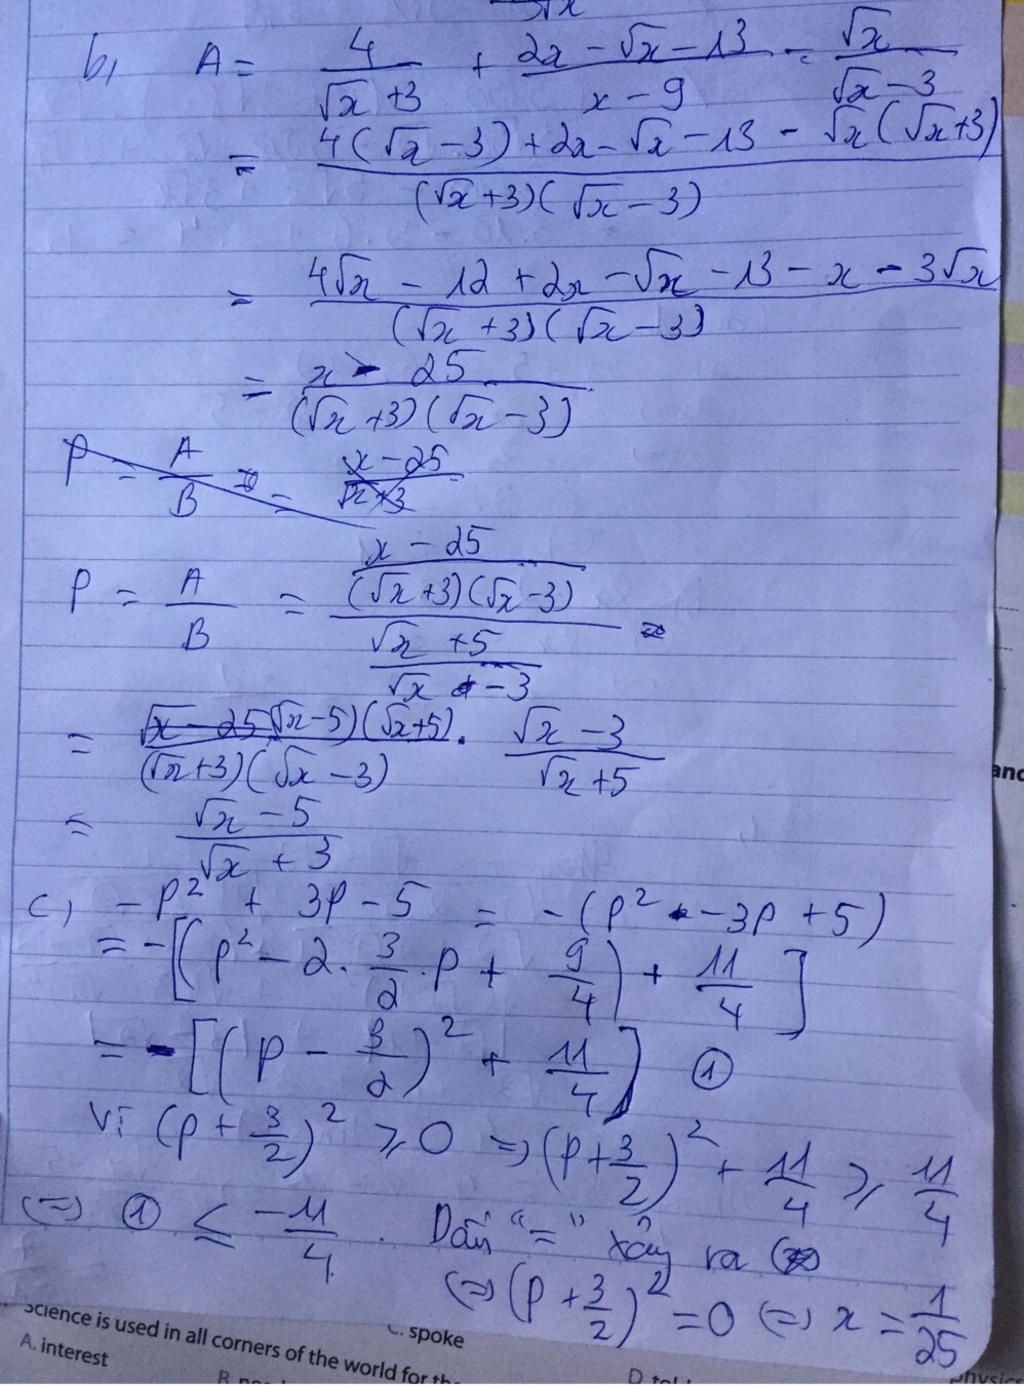 b, A = 4/(√x +3) + (2x - √x - 13)/(x - 9) - √x/(√x - 3)
= (4(√x - 3) + 2x - √x - 13 - √x(√x+3))/((√x+3)(√x - 3))
= (4√x - 12 + 2x - √x - 13 - x - 3√x)/((√x +3)(√x - 3))
= (x - 25)/((√x +3)(√x - 3))
P = A/B = (x - 25)/(√x+3)
P = A/B = ((x - 25)/((√x+3)(√x - 3)))/((√x +5)/(√x - 3)) =
= (√x - 5)(√x+5)/((√x+3)(√x - 3)) . (√x - 3)/(√x +5)
= (√x - 5)/(√x + 3)
c, -P² + 3P - 5 = -(P² - 3P + 5)
= -[(P² - 2. 3/2 .P + 9/4) + 11/4]
= -[(P - 3/2)² + 11/4] ①
Vì (P + 3/2)² ≥ 0 => (P + 3/2)² + 11/4 ≥ 11/4
(=) ① ≤ -11/4. Dấu "=" xảy ra
(=) (P + 3/2)² = 0 (=) x = 1/25
Science is used in all corners of the world for
C. spoke
A. interest
and